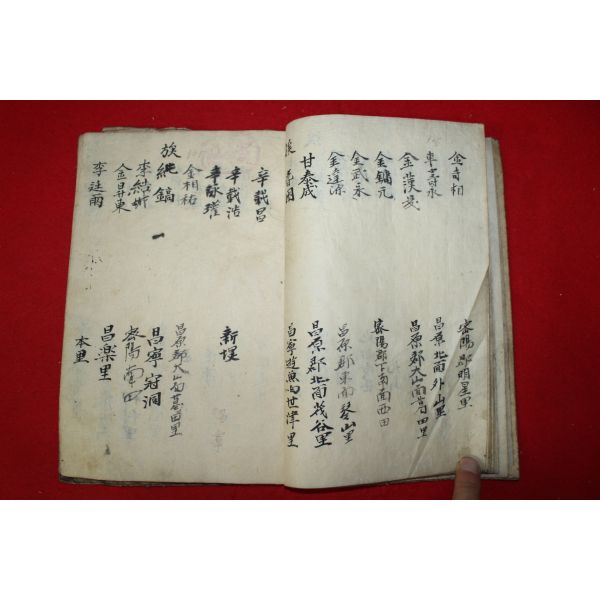 金奇相 密陽郡明星里
車 昌原北面外山里
金漢 昌原郡大山面葛田里
金鏞元 密陽郡下南面西田
金武永
金達源 昌原郡東面琴山里
甘泰成 昌原郡北面茂谷里
族 昌寧遊魚面世津里
辛載昌
辛載浩 新堤
辛詠瓘
金相祐 昌原郡大山面葛田里
族 純鎬 昌寧冠洞
李結 密陽
金昇東 昌樂里
李廷雨 本里